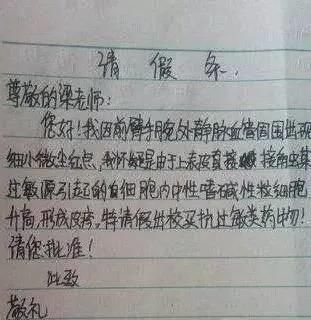 请 假 条.
尊敬的梁老师:
您好!我因前臂手腕外静脉血管周围出现
细小微尘红点,我怀疑是由于上表皮直接接向虫类
过敏源引起的白细胞内中性嗜碱性粒细胞
升高,形成皮疹,特请假出校买抗过敏类药物!
请您批准!
此致
敬礼